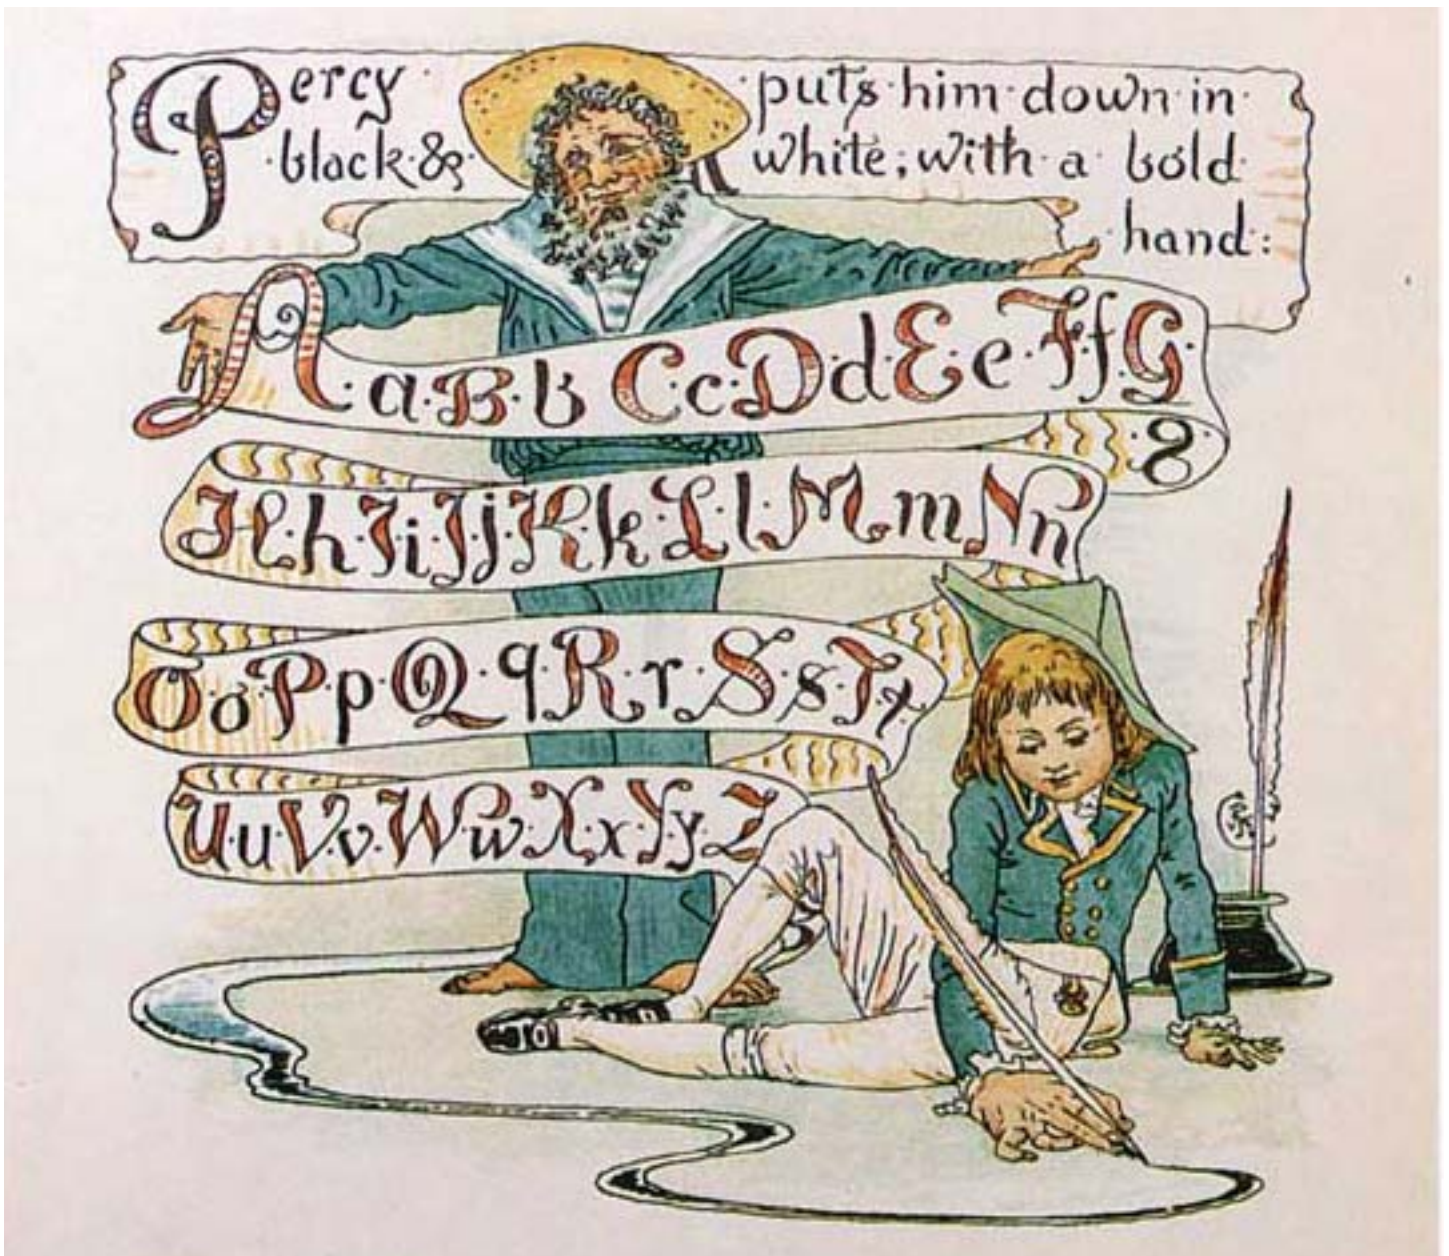 Percy puts him down in
black & white; with a bold
hand:
A a B b C c D d E e F f G
g
H h I i J j K k L l M m N n
O o P p Q q R r S s T t
U u V v W w X x Y y Z